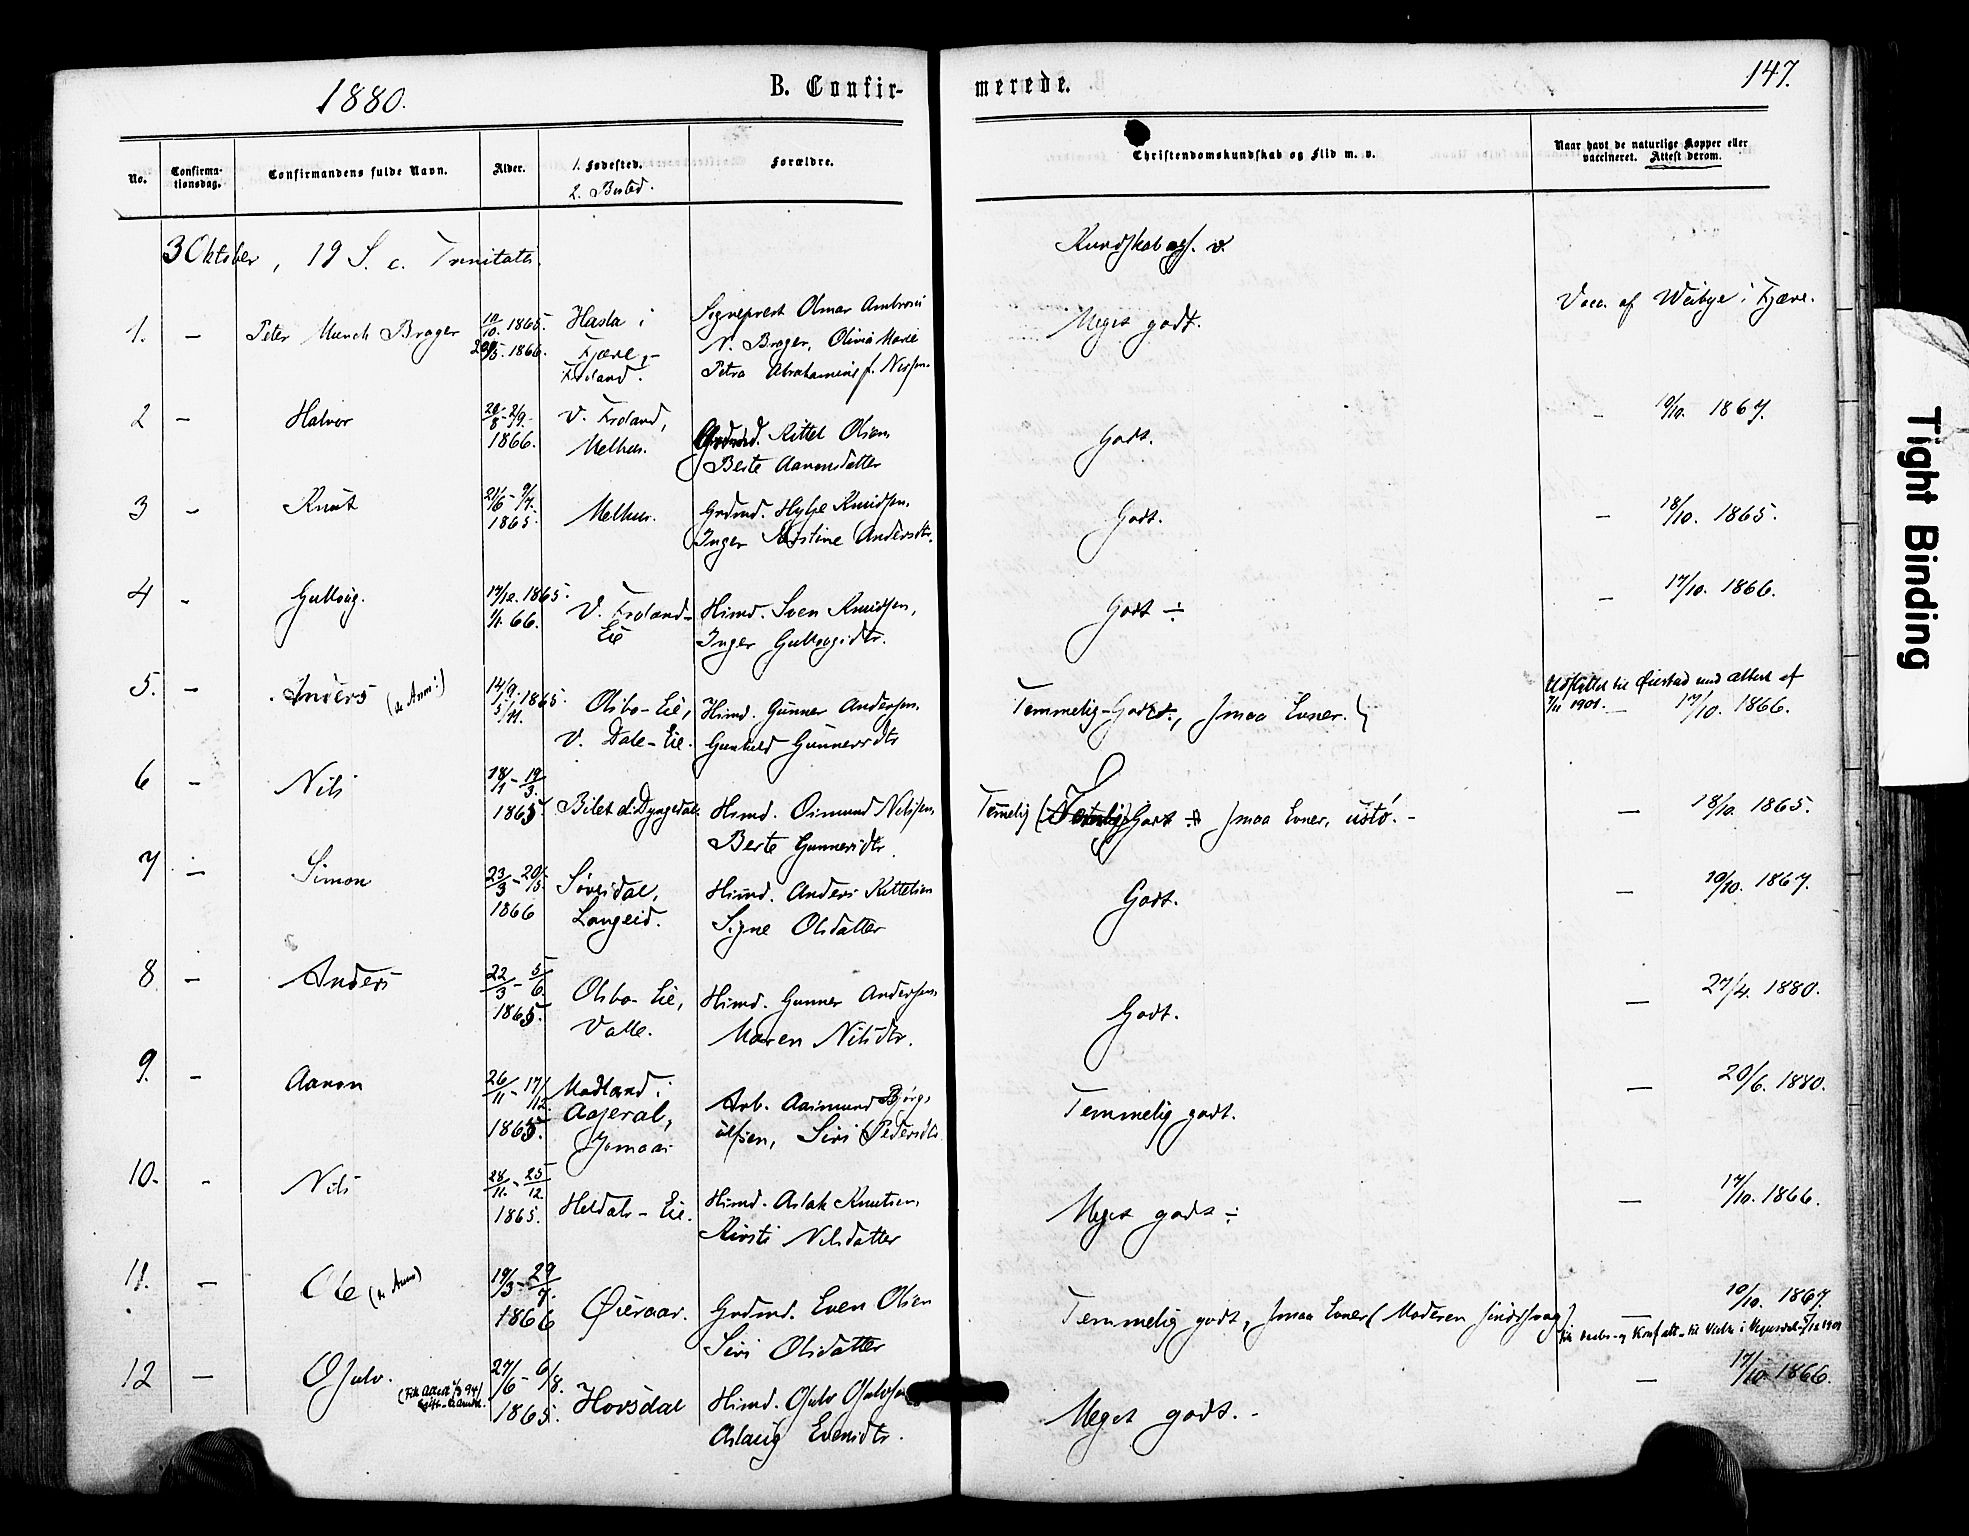 1880.
B. Confir-
merede.
147.
No.
Confirma-
tionsdag.
Confirmandens fulde Navn.
Alder.
1. Fødested.
2. Bosted.
Forældre.
Christendomskundskab og Flid m. v.
Naar havt de naturlige Kopper eller
vaccineret. Attest derom.
3 Oktober, 19 S. e. Trinitatis.
Kundskab og f. v.
1. - Peter Munch Brager
10/10. 1865.
1866.
Hasla i
Fjære,-
Froland.
Sogneprest Olmar Ambrosi
N. Brager, Olivia Marie
Petra Abrahamine f. Nissen.
Meget godt.
Vacc. af Weibye i Fjære.
2 - Halvor
20/8 - 2/9.
1866.
V. Froland,
Melhus.
Grdmd. Kittel Olsen,
Berte Aaronsdatter
Godt.
- 9/10. 1867.
3 - Knut
21/6 - 9/7.
1865.
Melhus.
Grdmd. Hylje Knudsen,
Inger Kristine Andersdtr.
Godt.
- 18/10. 1865.
4 - Gullaug.
17/12. 1865.
1/1. 66.
V. Froland-
Eie
Husmd. Sven Knudsen,
Inger Gullaugsdtr.
Godt ÷
- 17/10. 1866.
5. - Anders
14/9. 1865.
5/11.
Olsbo-Eie,
V. Dale-Eie.
Husmd. Gunner Andersen,
Gunhild Gunnersdtr
Temmelig-Godt, smaa Evner.
Udflyttet til Øiestad med attest af
7/11 1901. - 17/10. 1866.
6 - Nils
18/1 - 19/3.
1865
Bilet d: Dyngedal.
Husmd. Osmund Nilssen,
Berte Gunnersdtr.
Temmelig Godt smaa Evner, ustø. -
- 18/10. 1865.
7 - Simon
23/3 - 20/5
1866
Søvsdal,
Langeid.
Husmd. Anders Kittelsen
Signe Olsdatter
Godt.
- 10/10. 1867.
8. - Anders
22/3 - 5/6.
1865.
Olsbo-Eie,
Valle.
Husmd. Gunner Andersen,
Maren Nilsdtr.
Godt.
- 27/4. 1880.
9. - Aanon
26/11 - 17/12.
1865.
Modland i
Aaseral,
Jomaas
Arb. Aasmund Bjørg-
ulfsen, Siri Pedersdtr.
Temmelig godt.
- 20/6. 1880.
10. - Nils
28/11. - 25/12.
1865.
Heldals-Eie.
Husmd. Aslak Knutsen,
Kirsti Nilsdatter
Meget godt ÷
- 17/10. 1866.
11. - Ole
19/3 - 29/7.
1866
Øieraas.
Grdmd. Even Olsen
Siri Olsdatter
Temmelig godt, smaa Evner (Moderen sindssvag)
- 10/10. 1867.
12 - Osulv.
27/6 - 6/8.
1865.
Hovsdal
Husmd. Osulv Osulvsen
Aslaug Evensdtr.
Meget godt. -
- 17/10 1866.
Tight Binding